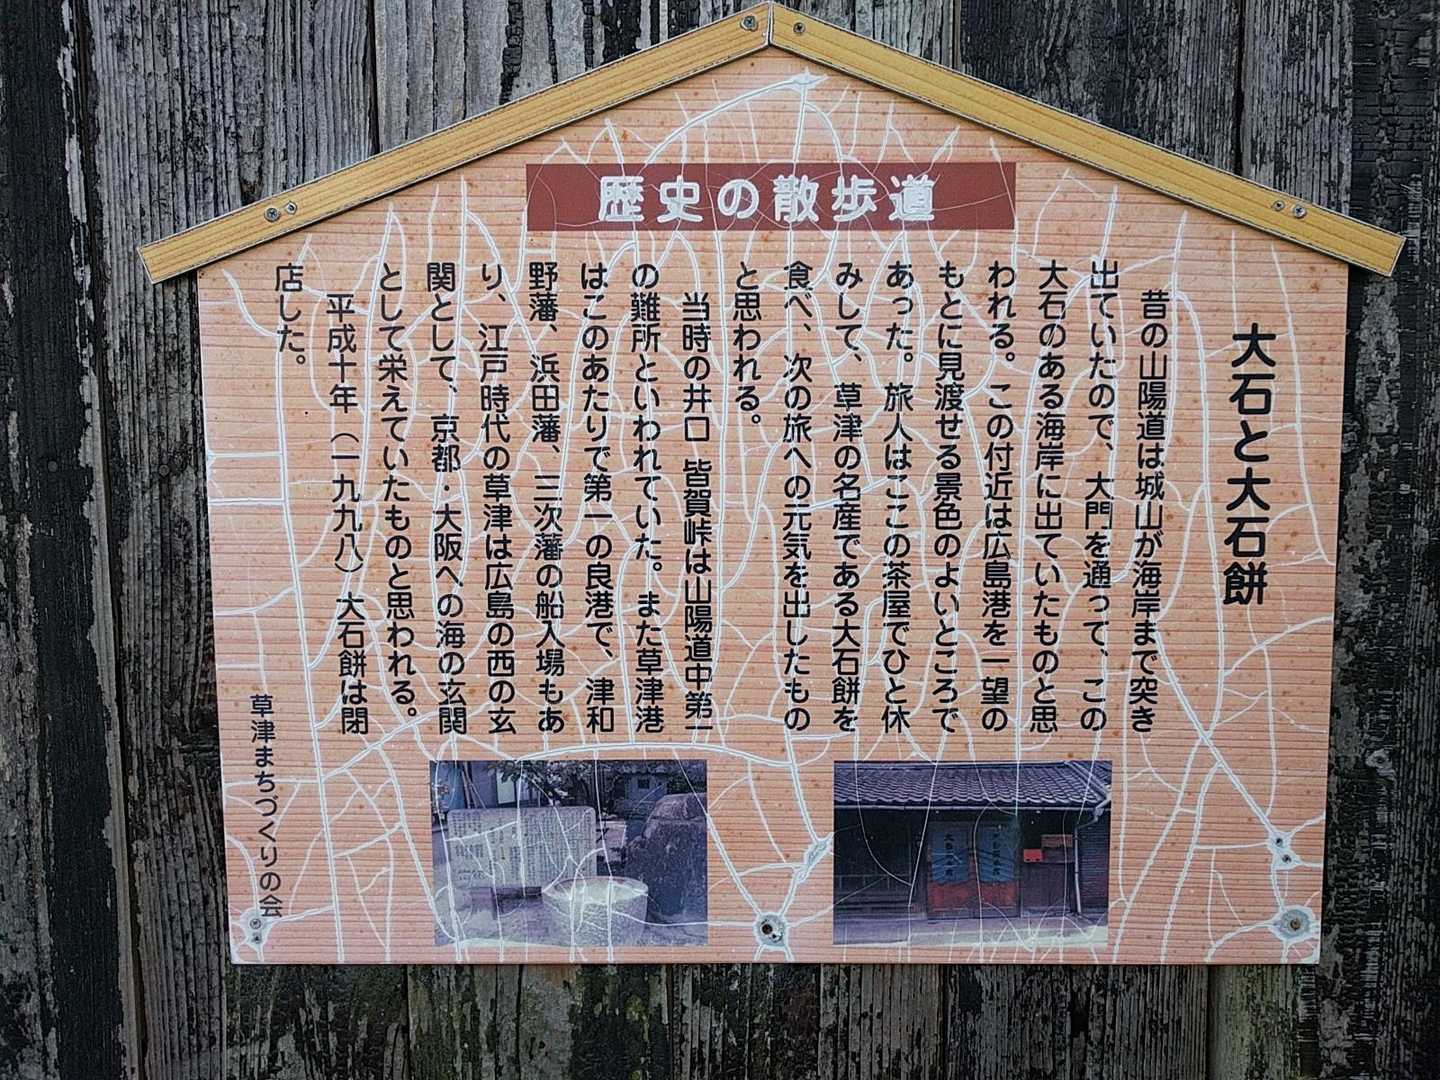 歴史の散歩道
大石と大石餅
昔の山陽道は城山が海岸まで突き
出ていたので、大門を通って、この
大石のある海岸に出ていたものと思
われる。この付近は広島港を一望の
もとに見渡せる景色のよいところで
あった。旅人はここの茶屋でひと休
みして、草津の名産である大石餅を
食べ、次の旅への元気を出したもの
と思われる。
当時の井口 皆賀峠は山陽道中第一
の難所といわれていた。また草津港
はこのあたりで第一の良港で、津和
野藩、浜田藩、三次藩の船入場もあ
り、江戸時代の草津は広島の西の玄
関として、京都・大阪への海の玄関
として栄えていたものと思われる。
平成十年（一九九八）大石餅は閉
店した。
草津まちづくりの会